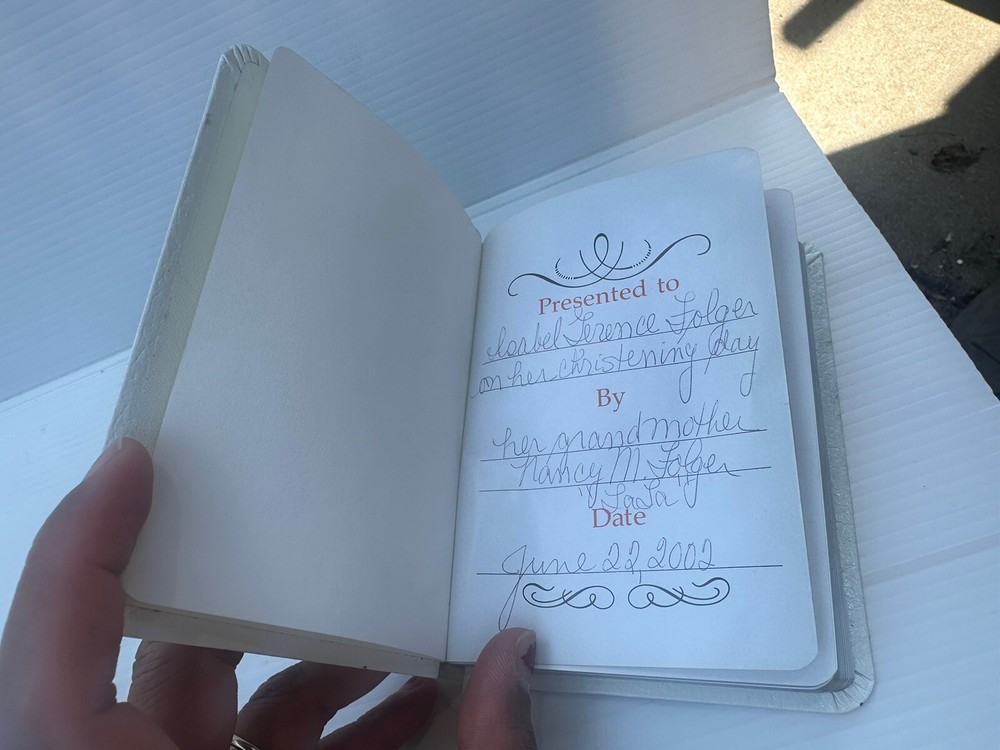 Presented to
Isabel Terence Folger
on her christening day
By
her grandmother
Nancy M. Folger
"LaLa"
Date
June 22, 2002